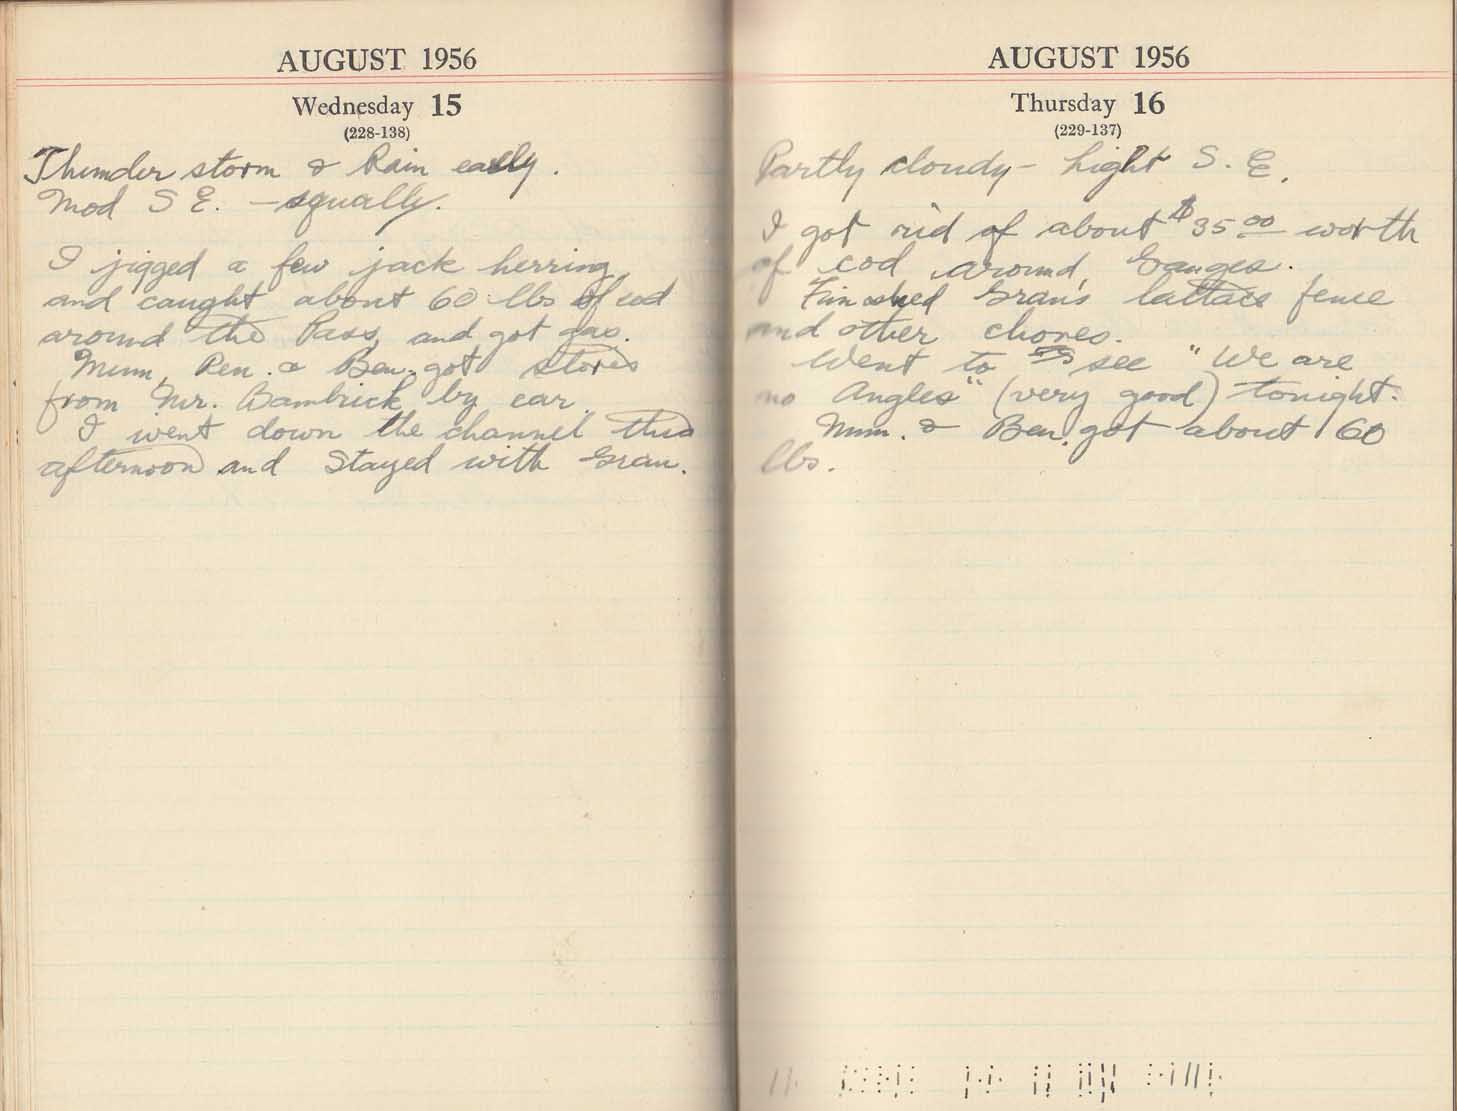 AUGUST 1956
Wednesday 15
(228-138)
Thunder storm & Rain early.
Mod S E. - squally.
I jigged a few jack herring,
and caught about 60 lbs of cod
around the Pass, and got gas.
Mum, Pen. & Ben. got stores
from Mr. Bambrick by car.
I went down the channel this
afternoon and stayed with Gran.
AUGUST 1956
Thursday 16
(229-137)
Partly cloudy - Light S. E.
I got rid of about $35.00 worth
of cod around Ganges.
Finished Gran's lattace fence
and other chores.
Went to see "We are
no Angles" (very good) tonight.
Mum. & Ben. got about 60
lbs.